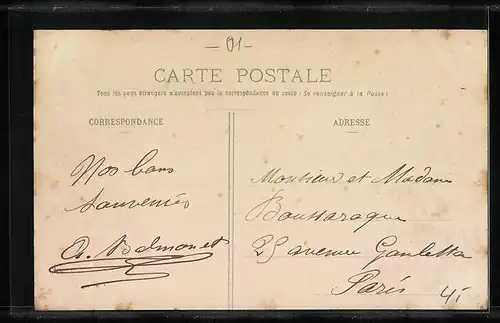 01
CARTE POSTALE
Tous les pays étrangers n'acceptent pas la correspondance au recto (Se renseigner à la Poste)
CORRESPONDANCE
ADRESSE
Nos bons
souvenirs
Monsieur et Madame
Boussaroque
25 avenue Gambetta
Paris